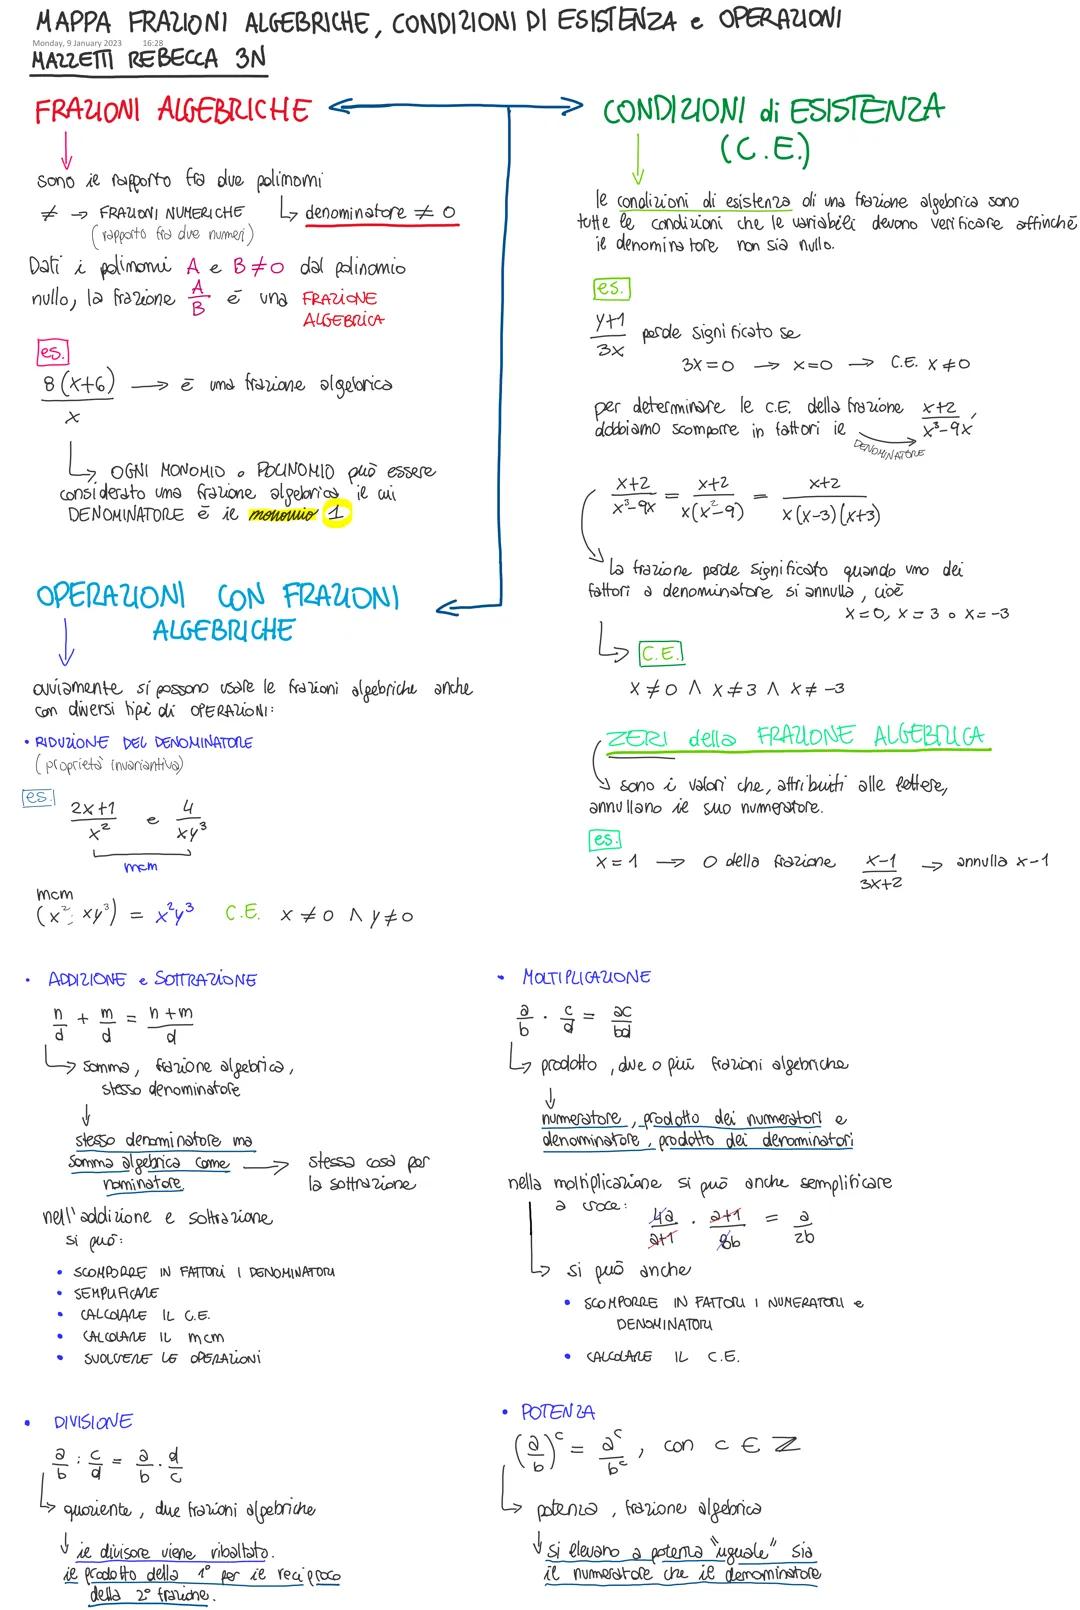 MAPPA FRAZIONI ALGEBRICHE, CONDIZIONI DI ESISTENZA e OPERAZIONI
Monday, 9 January 2023 16:28
MAZZETTI REBECCA 3N
FRAZIONI ALGEBRICHE
sono il rapporto fra due polinomi
≠ → FRAZIONI NUMERICHE
(rapporto fra due numeri)
↳ denominatore ≠ 0
Dati i polinomi A e B≠0 dal polinomio
nullo, la frazione A/B è una FRAZIONE
ALGEBRICA
es.
8(x+6)/x → è una frazione algebrica
↳ OGNI MONOMIO o POLINOMIO può essere
considerato una frazione algebrica il cui
DENOMINATORE è il monomio 1
CONDIZIONI di ESISTENZA
(C.E.)
le condizioni di esistenza di una frazione algebrica sono
tutte le condizioni che le variabili devono verificare affinché
il denominatore non sia nullo.
es.
y+1/3x perde significato se
3x=0 → x=0 → C.E. x≠0
per determinare le C.E. della frazione x+2/x³-9x,
dobbiamo scomporre in fattori il
DENOMINATORE
x+2/x³-9x = x+2/x(x²-9) = x+2/x(x-3)(x+3)
la frazione perde significato quando uno dei
fattori a denominatore si annulla, cioè
x=0, x=3 o x=-3
↳ C.E.
x≠0 ∧ x≠3 ∧ x≠-3
ZERI della FRAZIONE ALGEBRICA
sono i valori che, attribuiti alle lettere,
annullano il suo numeratore.
es.
x=1 → 0 della frazione x-1/3x+2 → annulla x-1
OPERAZIONI CON FRAZIONI
ALGEBRICHE
ovviamente si possono usare le frazioni algebriche anche
con diversi tipi di OPERAZIONI:
• RIDUZIONE DEL DENOMINATORE
(proprietà invariantiva)
es.
2x+1/x² e 4/xy³
mcm
mcm
(x²; xy³) = x²y³ C.E. x≠0 ∧ y≠0
• ADDIZIONE e SOTTRAZIONE
n/d + m/d = n+m/d
↳ somma, frazione algebrica,
stesso denominatore
↓
stesso denominatore ma
somma algebrica come
nominatore
→ stessa cosa per
la sottrazione
nell'addizione e sottrazione
si può:
• SCOMPORRE IN FATTORI I DENOMINATORI
• SEMPLIFICARE
• CALCOLARE IL C.E.
• CALCOLARE IL mcm
• SVOLGERE LE OPERAZIONI
• MOLTIPLICAZIONE
a/b · c/d = ac/bd
↳ prodotto, due o più frazioni algebriche
↓
numeratore, prodotto dei numeratori e
denominatore, prodotto dei denominatori
nella moltiplicazione si può anche semplificare
a croce: 4a/a+1 · a+1/8b = a/2b
↳ si può anche
• SCOMPORRE IN FATTORI I NUMERATORI e
DENOMINATORI
• CALCOLARE IL C.E.
• DIVISIONE
a/b : c/d = a/b · d/c
↳ quoziente, due frazioni algebriche
↓ il divisore viene ribaltato.
il prodotto della 1° per il reciproco
della 2° frazione.
• POTENZA
(a/b)ᶜ = aᶜ/bᶜ, con c ∈ Z
↳ potenza, frazione algebrica
↓ si elevano a potenza "uguale" sia
il numeratore che il denominatore